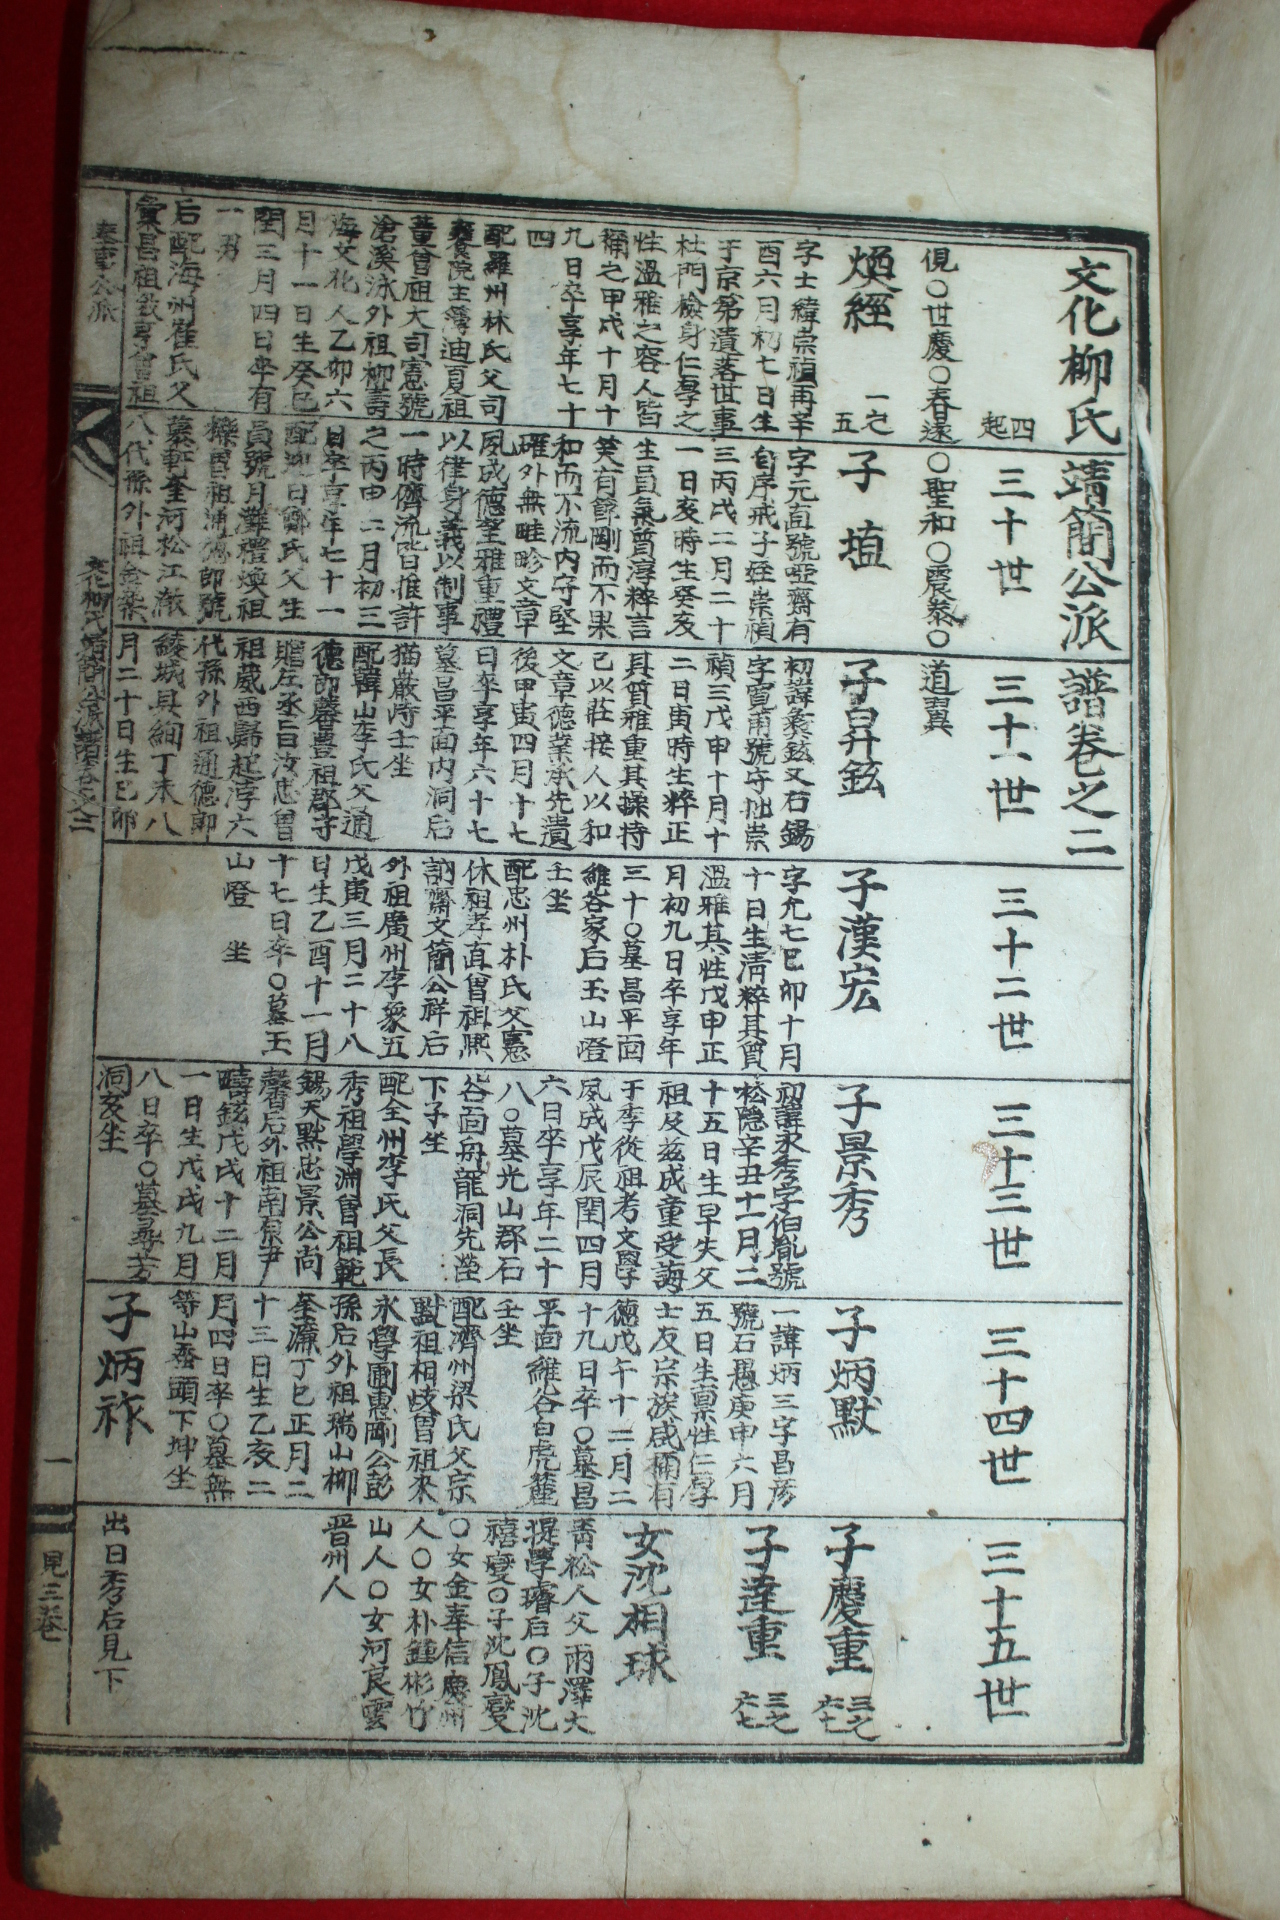 文化柳氏靖簡公派譜卷之二
四起
三十世
三十一世
三十二世
三十三世
三十四世
三十五世
俔○世慶○春遠○聖和○震泰○道翼
煥經
一之五
字士緯崇禎再辛
酉六月初七日生
于京第潰落世事
杜門檢身仁厚之
性溫雅之容人皆
稱之甲戌十月十
九日卒享年七十
四
配羅州林氏父司
饔院主簿迪夏祖
曾祖大司憲號
滄溪泳外祖柳壽
海文化人乙卯六
月十一日生癸巳
閏三月四日卒有
一男
后配海州崔氏父
彙昌祖致亨曾祖
子埴
字元直號啞齋有
自序戒子姪崇禎
三丙戌二月二十
一日亥時生癸亥
生員氣質淳粹言
笑有節剛而不果
和而不流內守堅
確外無畦畛文章
夙成德望雅重禮
以律身義以制事
一時儕流皆推許
之丙申二月初三
日卒享年七十一
配迎日鄭氏父生
員號月灘禮煥祖
曾祖浦鄕師號
墓軒奎河松江澈
八代孫外祖
子昇鉉
初諱彛鉉又石錫
字寬甫號守拙崇
禎三戊申十月十
二日寅時生粹正
其質雅重其操持
己以莊接人以和
文章德業承先遺
後甲寅四月十七
日卒享年六十七
墓昌平面內洞后
猫巖後士坐
配韓山李氏父通
德郎馨豊祖郡守
贈左丞旨汝忠曾
祖葳西歸起浡六
代孫外祖通德郎
綾城具綱丁未八
月二十日生己卯
子漢宏
字允七己卯十月
十日生淸粹其質
溫雅其性戊申正
月初九日卒享年
三十○墓昌平面
維谷家后玉山嶝
壬坐
配忠州朴氏父憲
休祖孝直曾祖熙
訥齋文簡公祥后
外祖廣州李象五
戊寅三月二十八
日生乙酉十一月
十七日卒○墓玉
山嶝　坐
子景秀
初諱永秀字伯胤號
松隱辛丑十一月二
十五日生早失父
祖及玆成童受誨
于季從祖考文學
夙成戊辰閏四月
六日卒享年二十
八○墓光山郡石
谷面舟龍洞先塋
下子坐
配全州李氏父長
秀祖學淵曾祖範
錫天默忠景公尙
馨后外祖南原尹
疇鉉戊戌十二月
一日生戊戌九月
八日卒○墓尋芳
洞亥坐
子炳默
一諱炳三字昌彦
號石愚庚申六月
五日生稟性仁厚
士友宗族咸稱有
德戊午十二月二
十九日卒○墓昌
平面維谷白虎麓
壬坐
配濟州梁氏父宗
默祖相岐曾祖來
永學圃惠剛公彭
孫后外祖瑞山柳
奎濂丁巳正月二
十三日生乙亥二
月四日卒○墓無
等山蚕頭下坤坐
子炳祚
子慶重
三之六七
子達重
三之六七
女沈相球
靑松人父雨澤大
提學璿后○子沈
禧燮○子沈鳳燮
○女金奉信慶州
人○女朴鍾彬竹
山人○女河良雲
晋州人
出日秀后見下
文化柳氏靖簡公派譜卷之二
一
見三卷